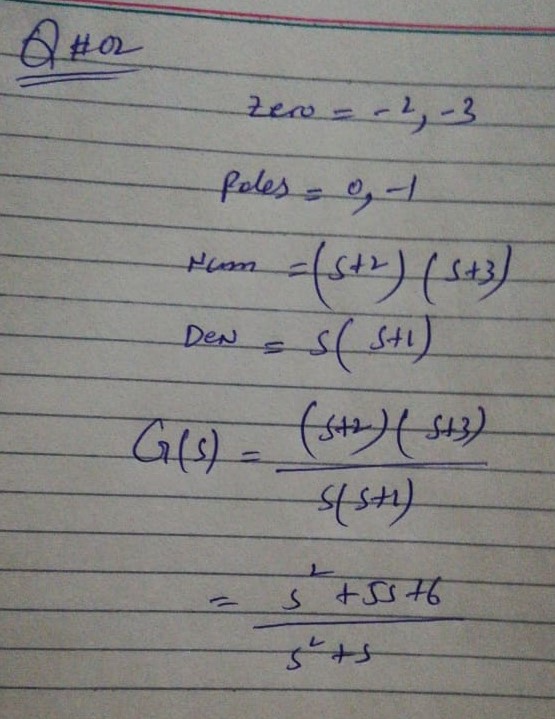 Q #02
Zero = -2, -3
Poles = 0, -1
Num = (s+2) (s+3)
Den = s( s+1)
G(s) = (s+2)( s+3)
s(s+1)
= s² +5s +6
s² +s